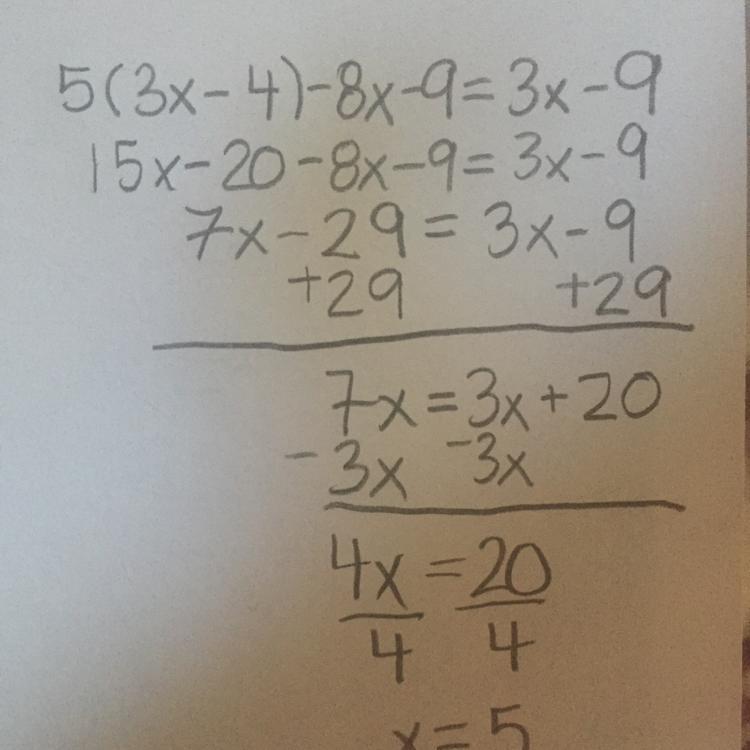 5(3x-4)-8x-9=3x-9
15x-20-8x-9=3x-9
7x-29=3x-9
+29 +29
7x=3x+20
-3x -3x
4x=20
4 4
x=5